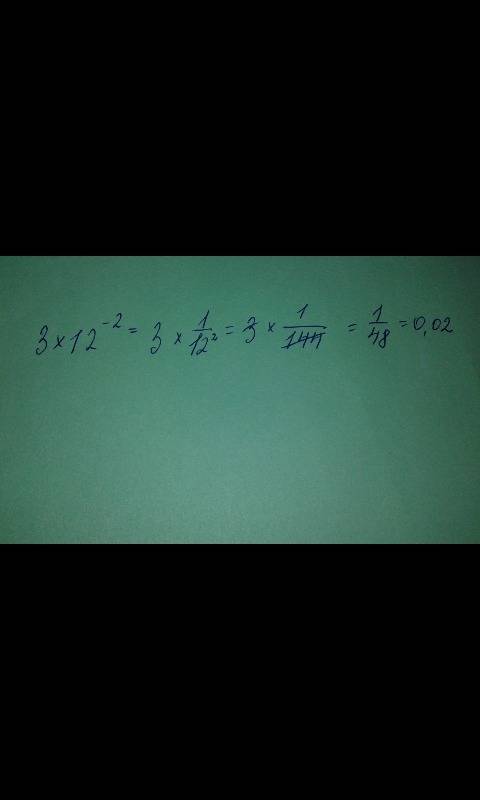 3 × 12⁻² = 3 × 1/12² = 3 × 1/144 = 1/48 = 0,02